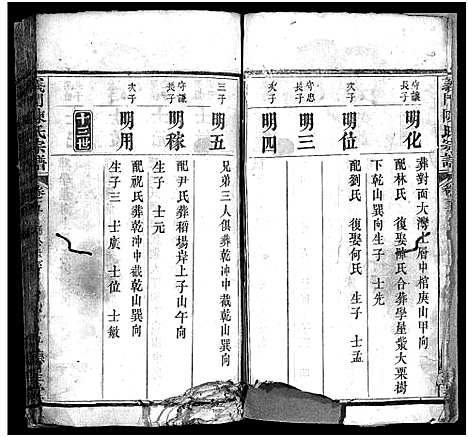 義門陳氏宗譜
守謙長子
明化
葬對面大灣上層申棺庚山甲向
配林氏 復娶陳氏合葬學屋寨大栗樹
下乾山巽向生子 士先
次子
明位
配劉氏 復娶何氏 生子 士孟
守忠長子
明三
次子
明四
三子
明五
兄弟三人俱葬乾冲中截乾山巽向
守謙長子
明稼
配尹氏葬稻場岸上子山午向
生子 士元
次子
明用
配祝氏葬乾冲中截乾山巽向
生子三 士廣 士位 士敏
十三世
義門陳氏宗譜